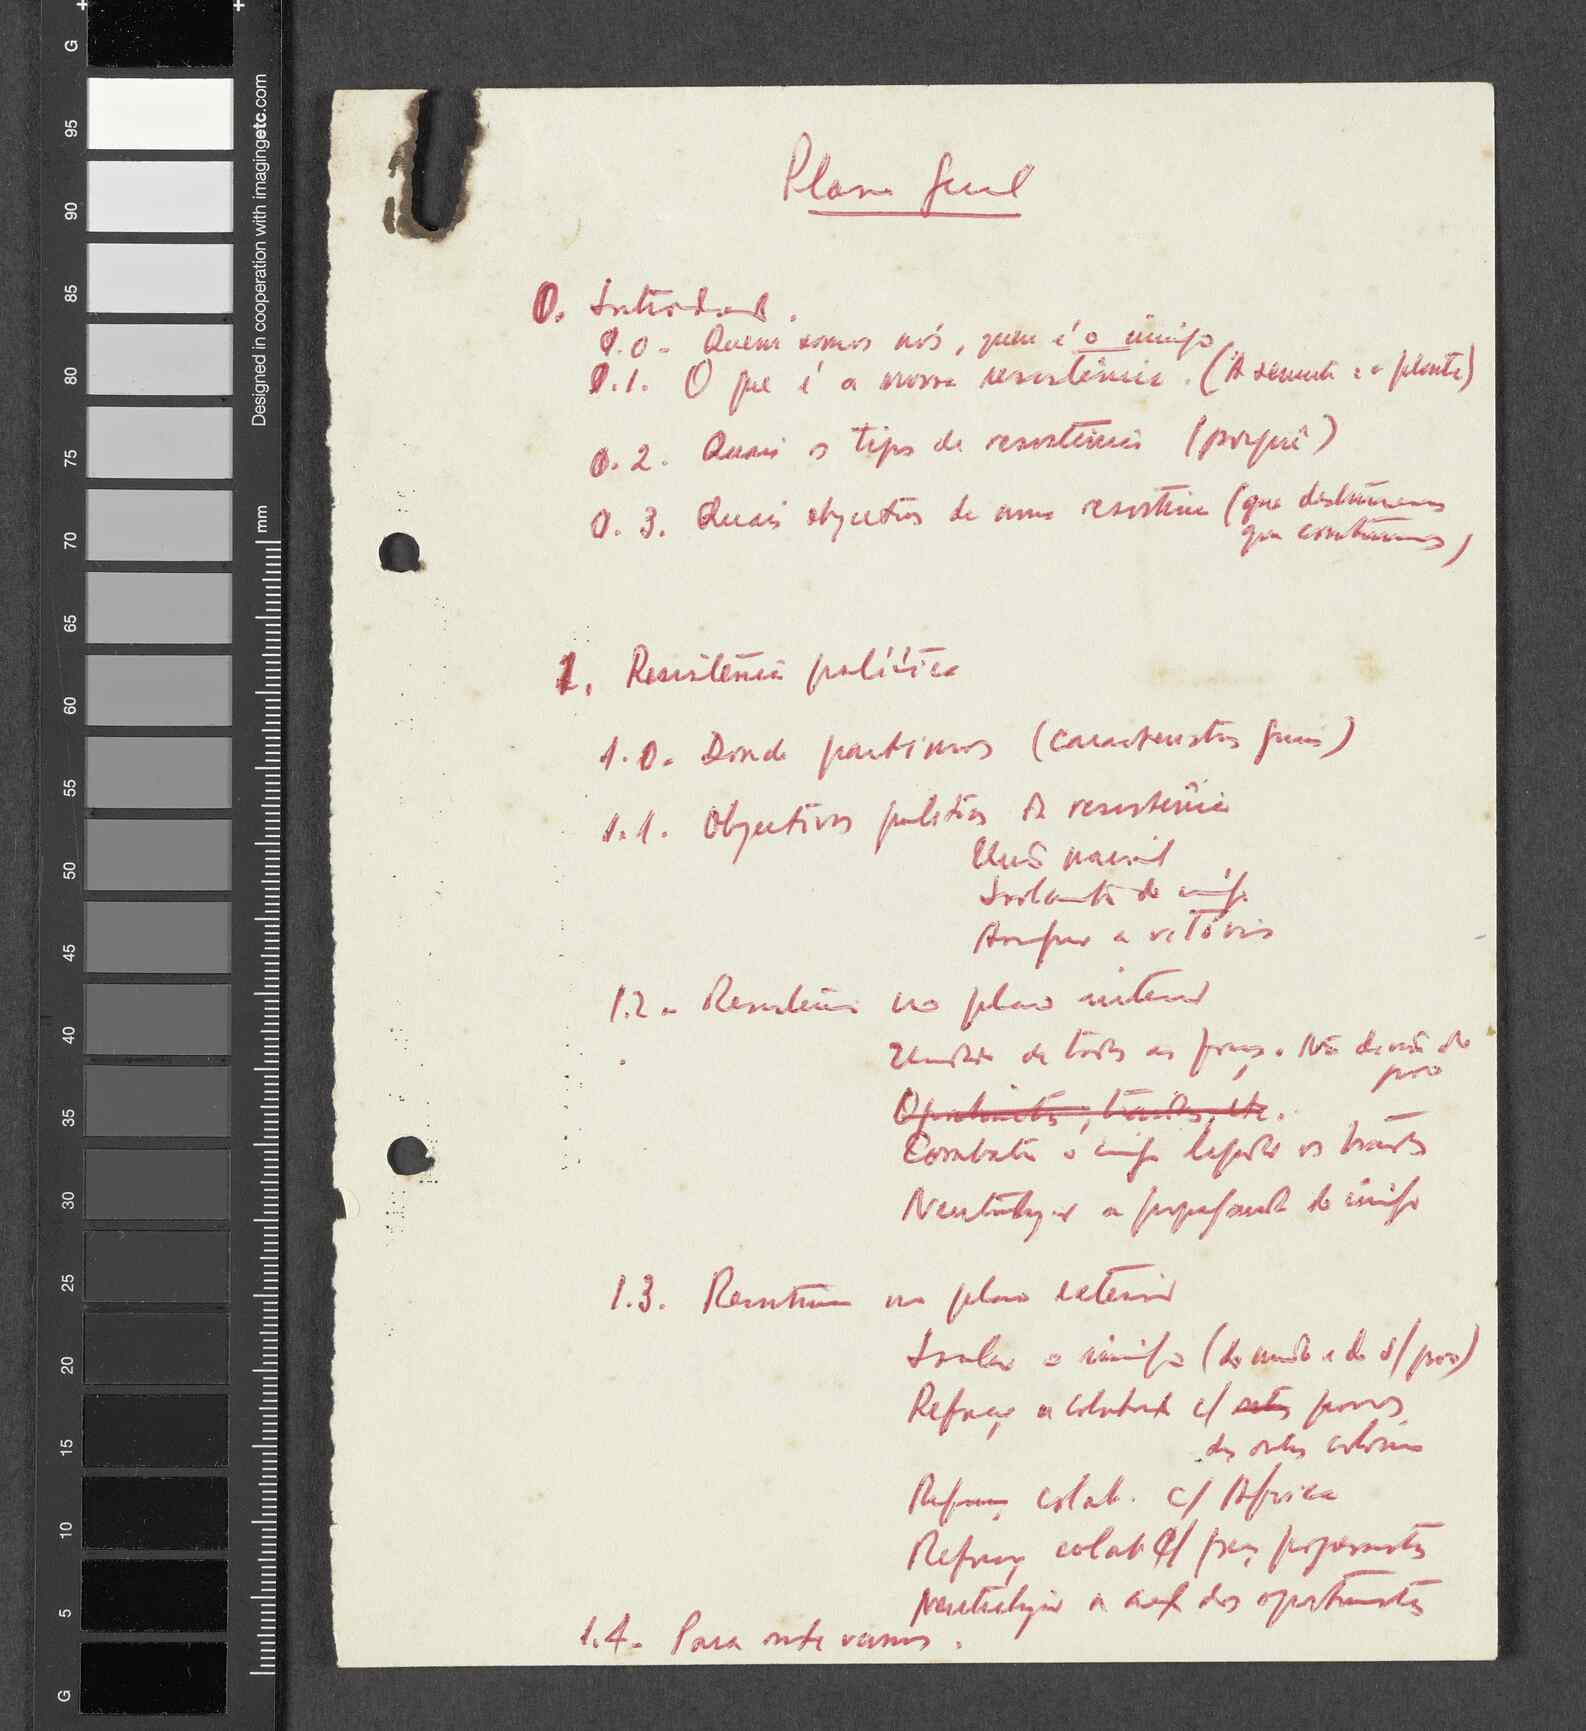 Plano geral
0. Introdução.
0.0. Quem somos nós, quem é o inimigo
0.1. O que é a nossa resistência. (A semente e a planta)
0.2. Quais os tipos de resistência (porquê)
0.3. Quais objectivos de uma resistência (que destruímos
que construímos)
1. Resistência política
1.0. Donde partimos (características gerais)
1.1. Objectivos políticos da resistência
União nacional
Isolamento do inimigo
Assegurar a vitória
1.2. Resistência no plano interior
Unidade de todas as forças. Não divisão do
povo
Oportunistas, traidores, etc.
Combater o inimigo liquidar os traidores
Neutralizar a propaganda do inimigo
1.3. Resistência no plano exterior
Isolar o inimigo (do mundo e do s/ povo)
Reforçar a colaboração c/ outros povos
das outras colónias
Reforçar colab. c/ África
Reforçar colab c/ forças progressistas
Neutralizar a acção dos oportunistas
1.4. Para onde vamos.
G
95
90
85
80
75
70
65
60
55
50
45
40
35
30
25
20
15
10
5
G
mm
Designed in cooperation with imagingetc.com
mm